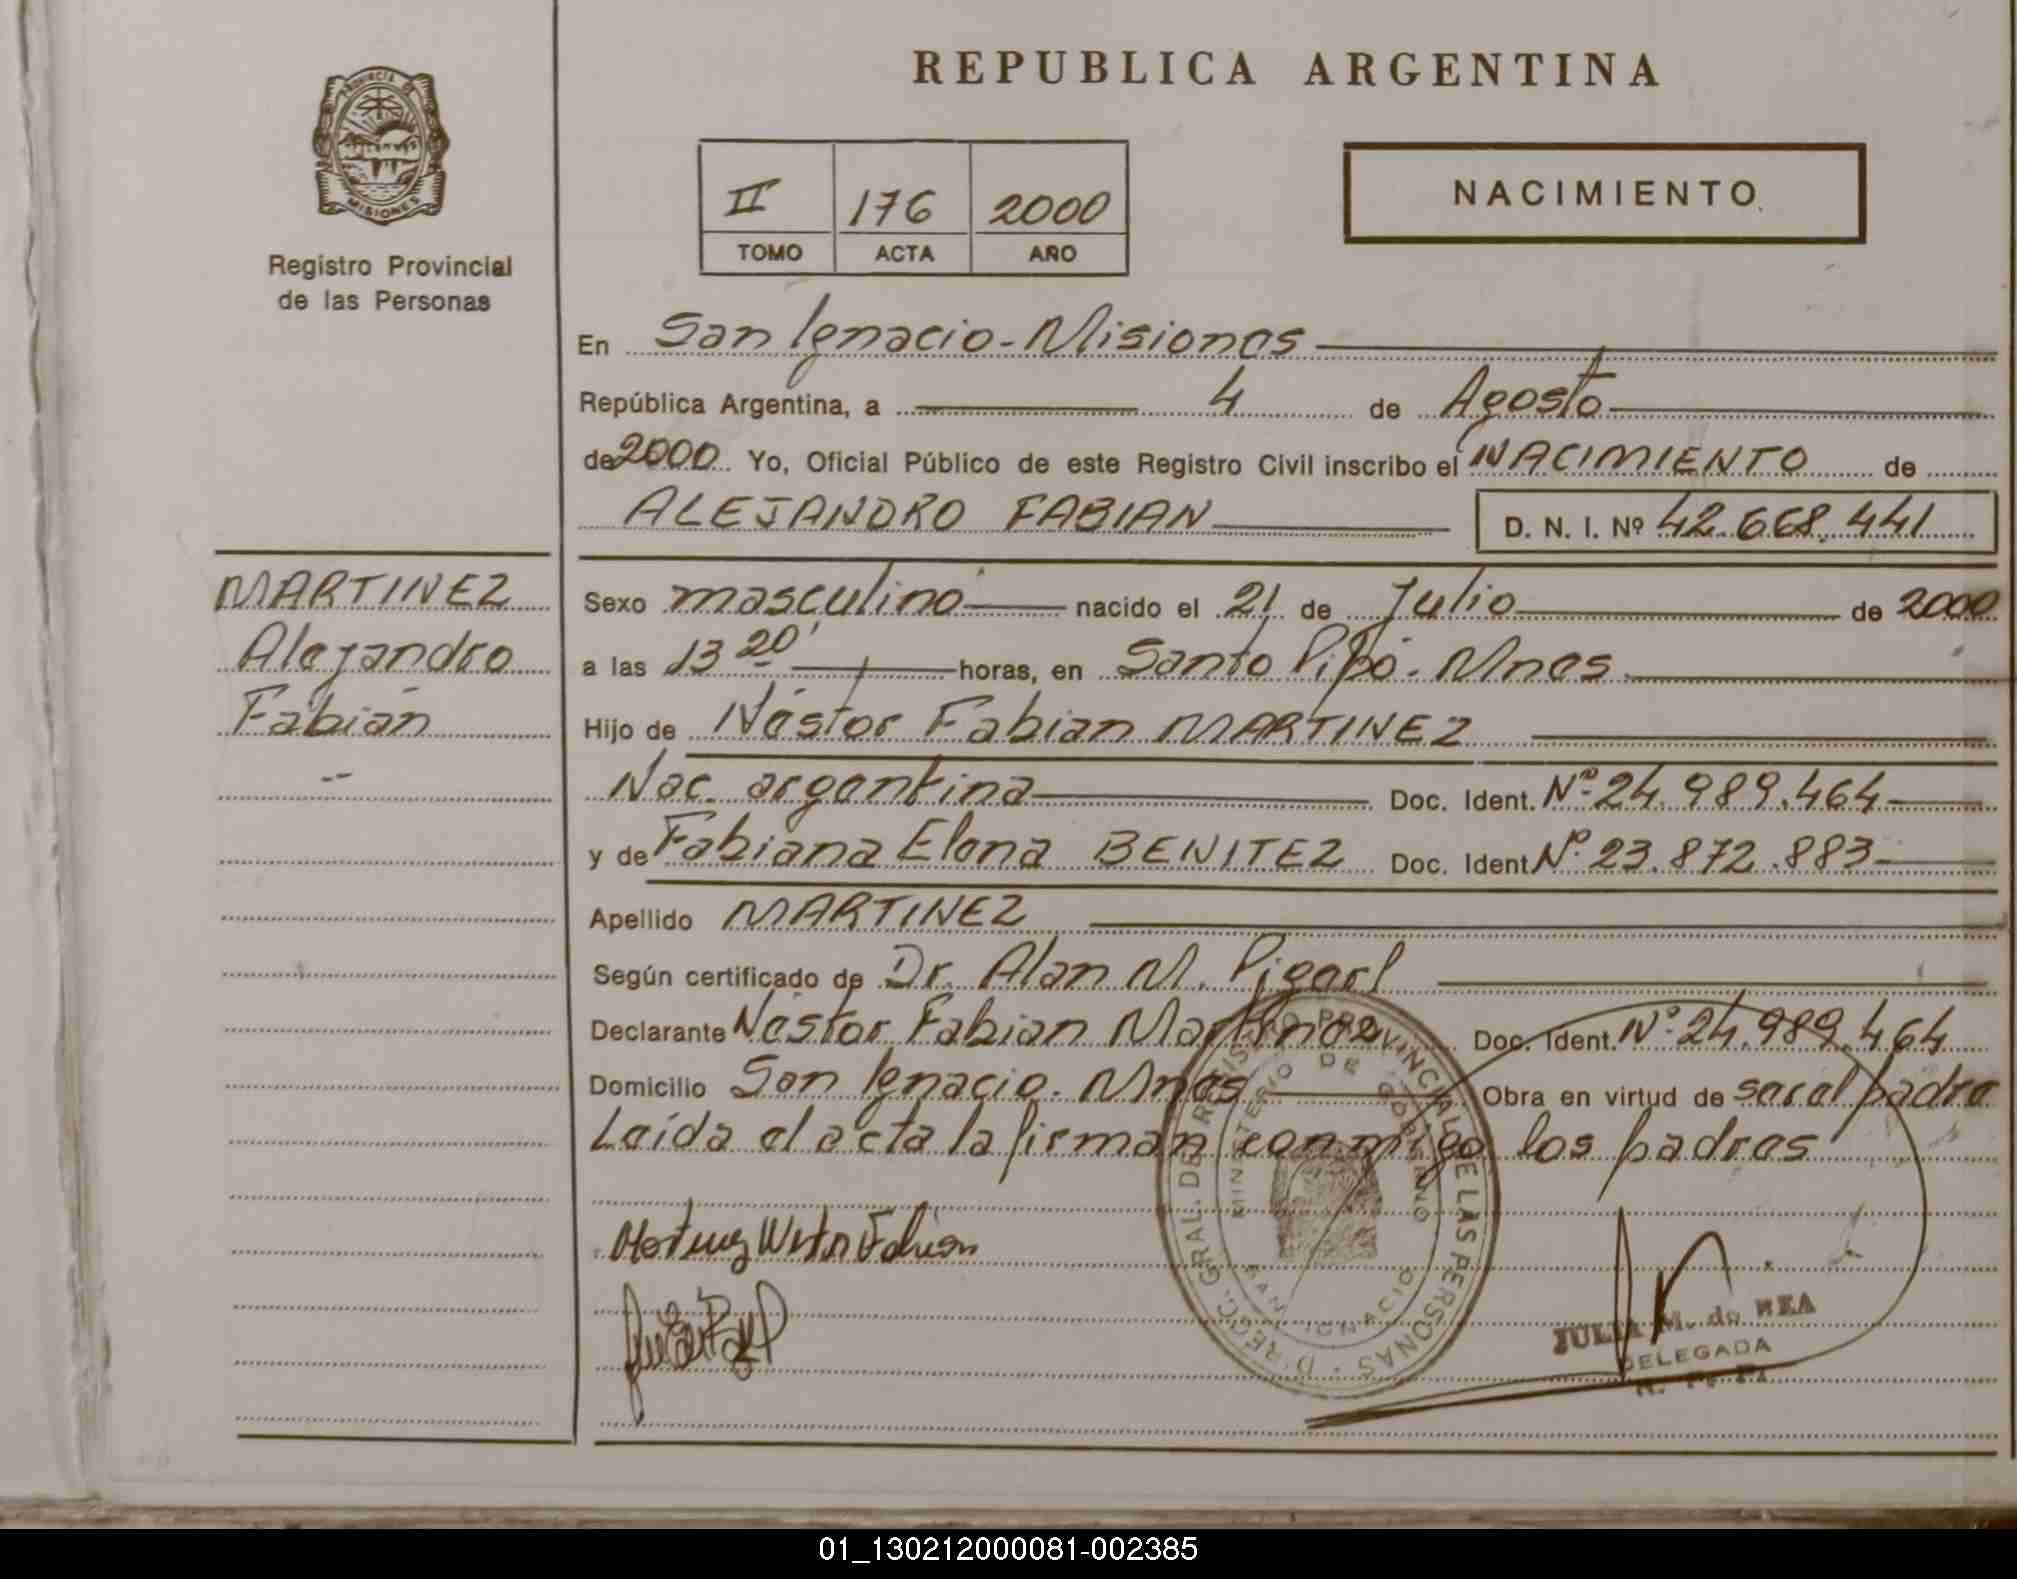 REPUBLICA ARGENTINA
PROVINCIA DE
MISIONES
Registro Provincial
de las Personas
II 176 2000
TOMO ACTA AÑO
NACIMIENTO
En San Ignacio - Misiones
República Argentina, a 4 de Agosto
de 2000 Yo, Oficial Público de este Registro Civil inscribo el NACIMIENTO de
ALEJANDRO FABIAN D. N. I. Nº 42.668.441
MARTINEZ
Alejandro
Fabián
--
Sexo masculino nacido el 21 de Julio de 2000
a las 13 20' horas, en Santo Pipó - Mnes.
Hijo de Néstor Fabian MARTINEZ
Nac. argentina Doc. Ident. Nº 24.989.464
y de Fabiana Elena BENITEZ Doc. Ident. Nº 23.872.883
Apellido MARTINEZ
Según certificado de Dr. Alan M.
Declarante Néstor Fabian Martinez Doc. Ident. Nº 24.989.464
Domicilio San Ignacio. Mnes Obra en virtud de ser el padre
Leída el acta la firman conmigo los padres
D'RECC. GRAL. DE REGISTRO PROVINCIAL DE LAS PERSONAS
MINISTERIO DE GOBIERNO
SAN IGNACIO
JULIA M. de REA
DELEGADA
R. P. P.
01_130212000081-002385